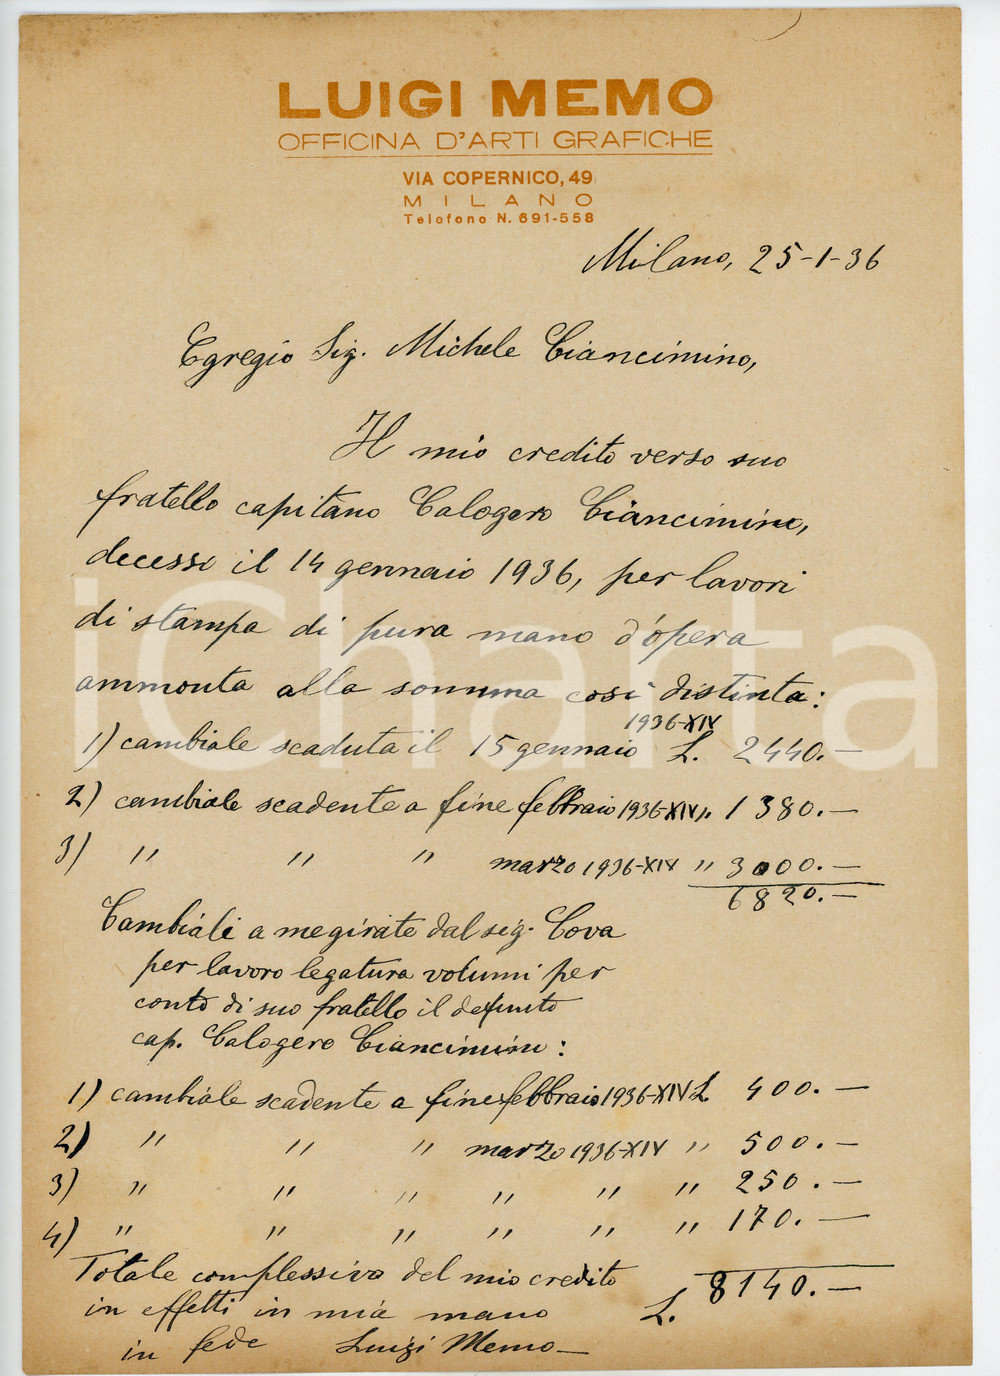 LUIGI MEMO
OFFICINA D'ARTI GRAFICHE
VIA COPERNICO, 49
MILANO
Telefono N. 691-558
Milano, 25-1-36
Egregio Sig. Michele Ciancimino,
Il mio credito verso suo
fratello capitano Calogero Ciancimino,
decesso il 14 gennaio 1936, per lavori
di stampa di pura mano d'opera
ammonta alla somma così distinta:
1936-XIV
1) cambiale scaduta il 15 gennaio L. 2440.—
2) cambiale scadente a fine febbraio 1936-XIV „ 1380.—
3) " " " marzo 1936-XIV " 3000.—
6820.—
Cambiali a me girate dal sig. Cova
per lavoro legatura volumi per
conto di suo fratello il defunto
cap. Calogero Ciancimino:
1) cambiale scadente a fine febbraio 1936-XIV L. 400.—
2) " " " marzo 1936-XIV " 500.—
3) " " " " " " 250.—
4) " " " " " " 170.—
Totale complessivo del mio credito
in effetti in mia mano L. 8140.—
in fede Luigi Memo—
iCharta